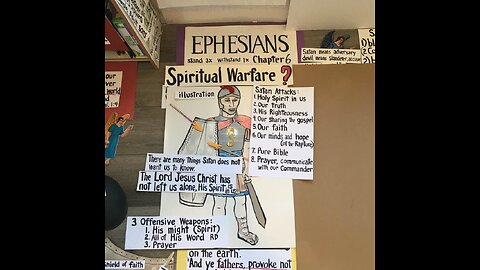 EPHESIANS
stand 3x withstand 1x Chapter 6
Spiritual Warfare?
illustration
Satan Attacks:
1. Holy Spirit in us
2. Our Truth
3. His Righteousness
4. Our sharing the gospel
5. Our faith
6. Our minds and hope
(of the Rapture)
7. Pure Bible
8. Prayer, communicate
with our Commander
There are many Things Satan does not
want us to know.
The Lord Jesus Christ has
not left us alone, His Spirit is in us
3 Offensive Weapons:
1. His might (Spirit)
2. All of His Word RD
3. Prayer
on the earth.
4 And ye fathers, provoke not
Shield of faith
Satan means adversary
devil means slanderer
world